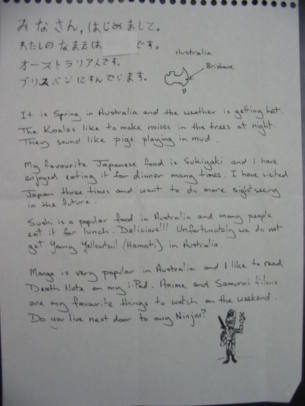 みなさん,はじめまして。
わたしの なまえは です。
オーストラリア人です。
ブリスベンに すんでいます。
Australia
Brisbane
It is Spring in Australia and the weather is getting hot.
The Koalas like to make noises in the trees at night.
They sound like pigs playing in mud
My favourite Japanese food is Sukiyaki and I have
enjoyed eating it for dinner many times. I have visited
Japan three times and want to do more sightseeing
in the future.
Sushi is a popular food in Australia and many people
eat it for lunch. Delicious!!! Unfortunately we do not
get Young Yellowtail (Hamachi) in Australia
Manga is very popular in Australia and I like to read
Death Note on my iPad. Anime and Samurai films
are my favourite things to watch on the weekend.
Do you live next door to any Ninjas?